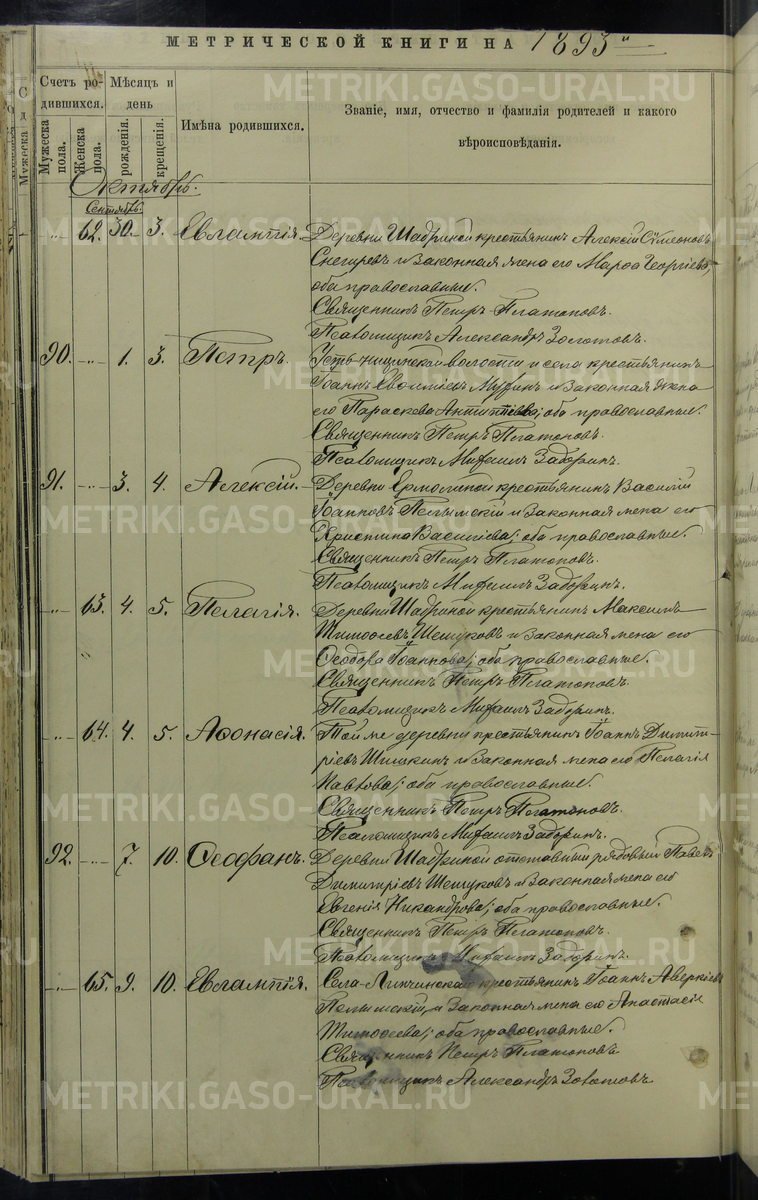 МЕТРИЧЕСКОЙ КНИГИ НА 1893 й
Счетъ ро- Мѣсяцъ и
дившихся. день
Мужеска пола. Женска пола. рожденія. крещенія.
Имѣна родившихся.
Званіе, имя, отчество и фамилія родителей и какого
вѣроисповѣданія.
Мужеска
Октябрь.
Сентябрь.
„ 62. 30. 3. Евлампія. Деревни Шадриной крестьянинъ Алексій Сѵмеоновъ
Снегиревъ и законная жена его Марѳа Георгіева;
оба православные.
Священникъ Петръ Платоновъ.
Псаломщикъ Александръ Золотовъ.
90. „ 1. 3. Петръ. Усть-ницинской волости и села крестьянинъ
Іоаннъ и законная жена
его Параскева Антипьева; оба православные.
Священникъ Петръ Платоновъ.
Псаломщикъ Михаилъ Задоринъ.
91. „ 3. 4. Алексій. Деревни Ермолиной крестьянинъ Василій
Іоанновъ Пелымскій и законная жена его
Христина Василіева; оба православные.
Священникъ Петръ Платоновъ.
Псаломщикъ Михаилъ Задоринъ.
„ 63. 4. 5. Пелагія. Деревни Шадриной крестьянинъ Максимъ
Тимоѳеевъ Шешуковъ и законная жена его
Ѳеодора Іоаннова; оба православные.
Священникъ Петръ Платоновъ.
Псаломщикъ Михаилъ Задоринъ.
„ 64. 4. 5. Аѳонасія. Той же деревни крестьянинъ Іоаннъ Димит-
ріевъ Шишкинъ и законная жена его Пелагія
Павлова; оба православные.
Священникъ Петръ Платоновъ.
Псаломщикъ Михаилъ Задоринъ.
92. „ 7. 10. Ѳеофанъ. Деревни Шадриной отставный рядовый Павелъ
Димитріевъ Шешуковъ и законная жена его
Евгенія Никандрова; оба православные.
Священникъ Петръ Платоновъ.
Псаломщикъ Михаилъ Задоринъ.
„ 65. 9. 10. Евлампія. Села Липчинскаго крестьянинъ Іоаннъ Аверкіевъ
Пелымскій, и законная жена его Анастасія
Тимоѳеева; оба православные.
Священникъ Петръ Платоновъ
Псаломщикъ Александръ Золотовъ
METRIKI.GASO-URAL.RU